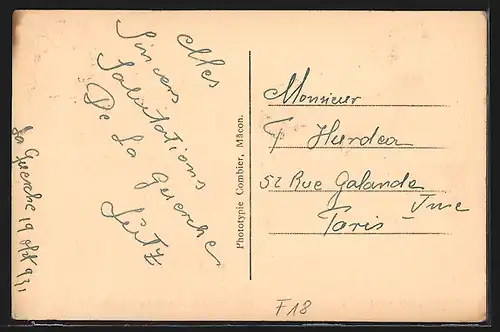 Mes
Sincers
Salutations
De La Guerche
Lutz
La Guerche 19 931
Phototypie Combier, Mâcon.
Monsieur
Hurdea
52 Rue Galande
Paris
F18